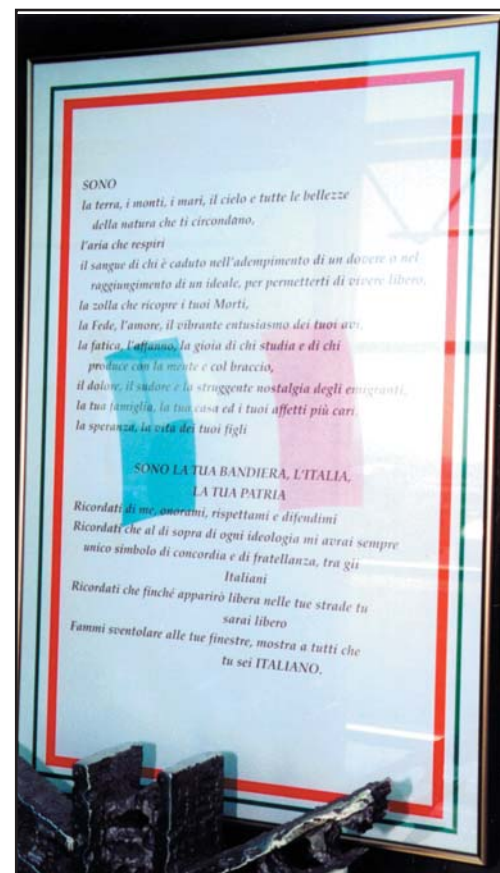 SONO
la terra, i monti, i mari, il cielo e tutte le bellezze
della natura che ti circondano,
l'aria che respiri
il sangue di chi è caduto nell'adempimento di un dovere o nel
raggiungimento di un ideale, per permetterti di vivere libero,
la zolla che ricopre i tuoi Morti,
la Fede, l'amore, il vibrante entusiasmo dei tuoi avi,
la fatica, l'affanno, la gioia di chi studia e di chi
produce con la mente e col braccio,
il dolore, il sudore e la struggente nostalgia degli emigranti,
la tua famiglia, la tua casa ed i tuoi affetti più cari,
la speranza, la vita dei tuoi figli
SONO LA TUA BANDIERA, L'ITALIA,
LA TUA PATRIA
Ricordati di me, onorami, rispettami e difendimi
Ricordati che al di sopra di ogni ideologia mi avrai sempre
unico simbolo di concordia e di fratellanza, tra gli
Italiani
Ricordati che finché apparirò libera nelle tue strade tu
sarai libero
Fammi sventolare alle tue finestre, mostra a tutti che
tu sei ITALIANO.